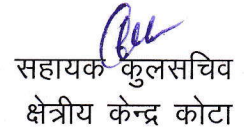 सहायक कुलसचिव
क्षेत्रीय केन्द्र कोटा